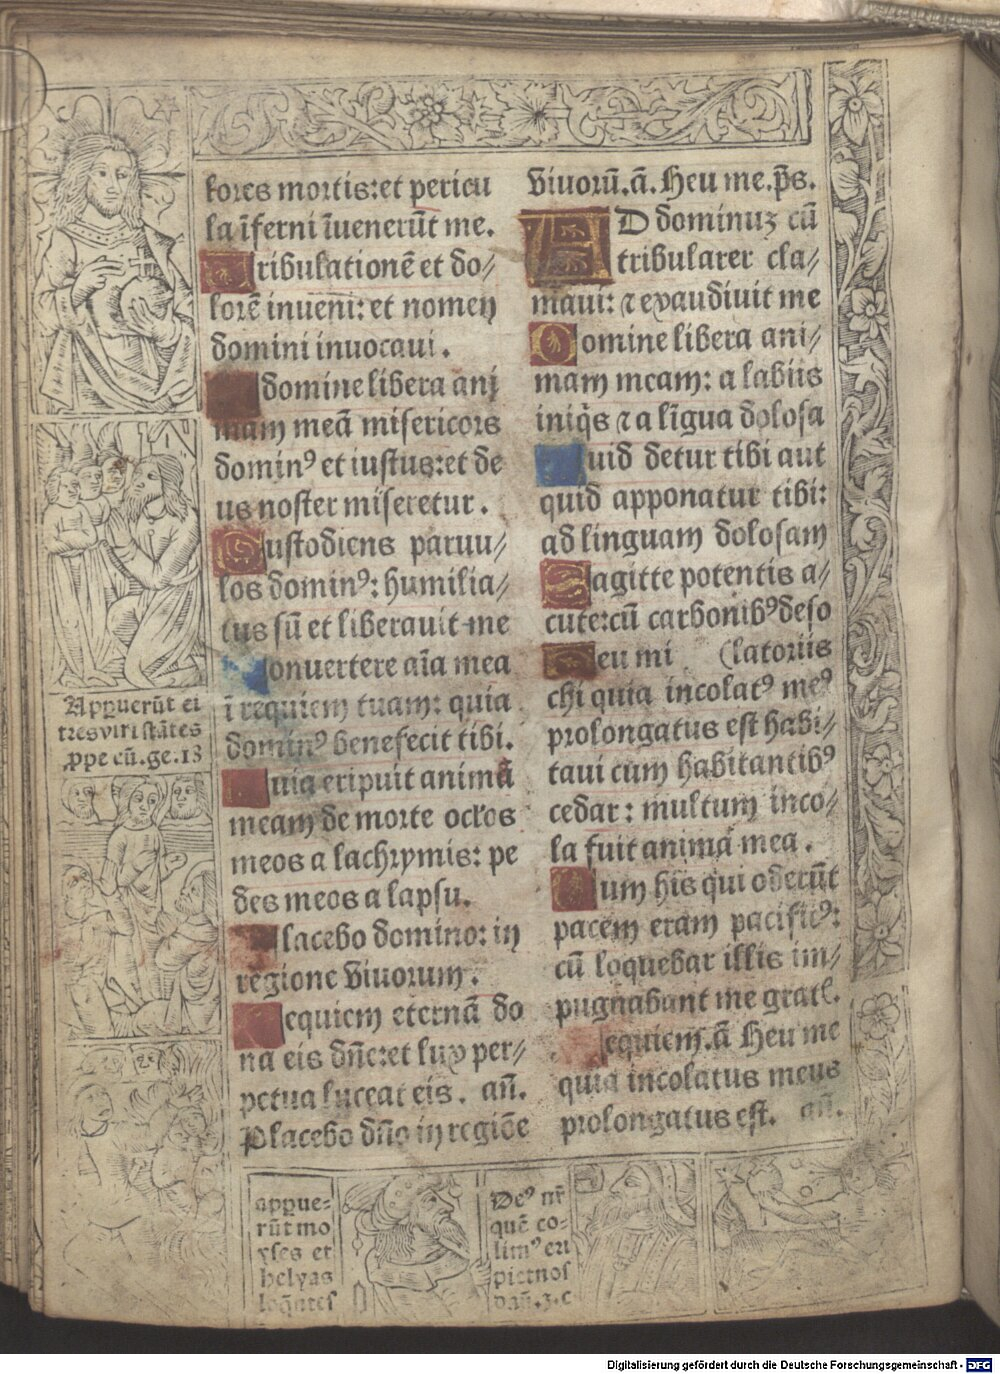 lores mortis:et pericu
la īferni īuenerūt me.
Tribulationē et do//
lorē inueni: et nomen
domini inuocaui.
O domine libera ani
mam meā misericors
dominꝰ et iustus:et de
us noster miseretur.
Custodiens paruu//
los dominꝰ: humilia//
tus sū et liberauit me
Conuertere aīa mea
ī requiem tuam: quia
dominꝰ benefecit tibi.
Quia eripuit animā
meam de morte oc̄l'os
meos a lachrymis: pe
des meos a lapsu.
Placebo domino: in
regione viuorum.
Requiem eternā do
na eis dn̄e:et lux per//
petua luceat eis. an̄.
Placebo dn̄o in regiōe
viuorū.ā. Heu me.p̄s.
AD dominuꝫ cū
tribularer cla//
maui: ⁊ exaudiuit me
Domine libera ani//
mam meam: a labiis
iniq̄s ⁊ a līgua dolosa
Quid detur tibi aut
quid apponatur tibi:
ad linguam dolosam
Sagitte potentis a//
cute:cū carbonibꝰ deso
Heu mi (latoriis
chi quia incolatꝰ meꝰ
prolongatus est habi//
taui cum habitantibꝰ
cedar: multum inco//
la fuit anima mea.
Cum his qui oderūt
pacem eram pacificꝰ:
cū loquebar illis im//
pugnabant me grat'.
Requiem.ā Heu me
quia incolatus meus
prolongatus est. an̄.
Appuerūt ei
tres viri stātes
ꝓpe cū.ge.13
appue-
rūt mo
yses et
helyas
loq̄ntes
Deꝰ nr̄
quē co-
limꝰ eri
pietnos
dan̄.3.c
Digitalisierung gefördert durch die Deutsche Forschungsgemeinschaft - DFG